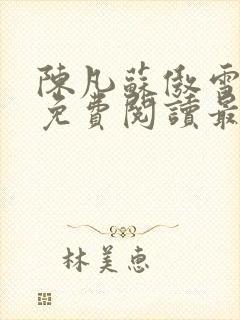 陳凡蘇傲雪
免費閱讀最
林美惠